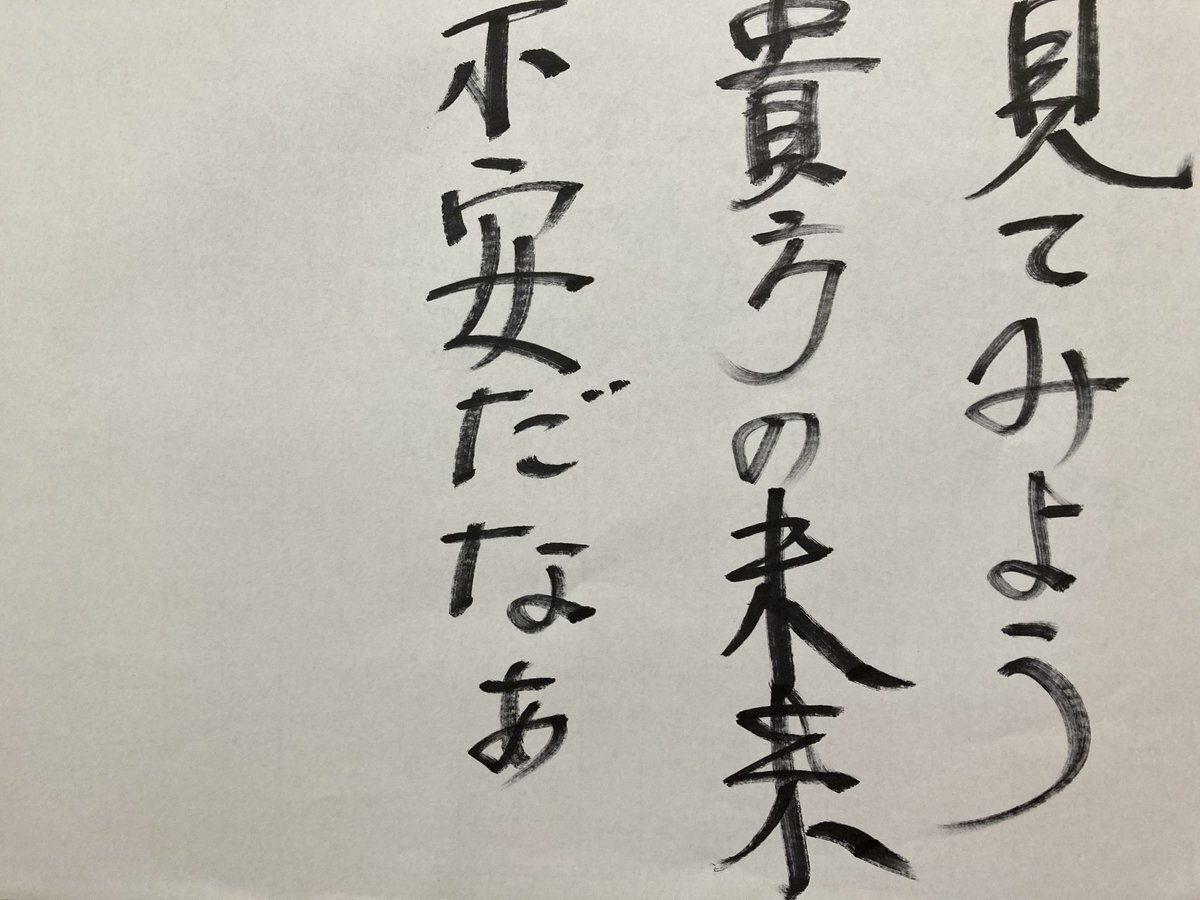 見てみよう
貴方の未来
不安だなぁ